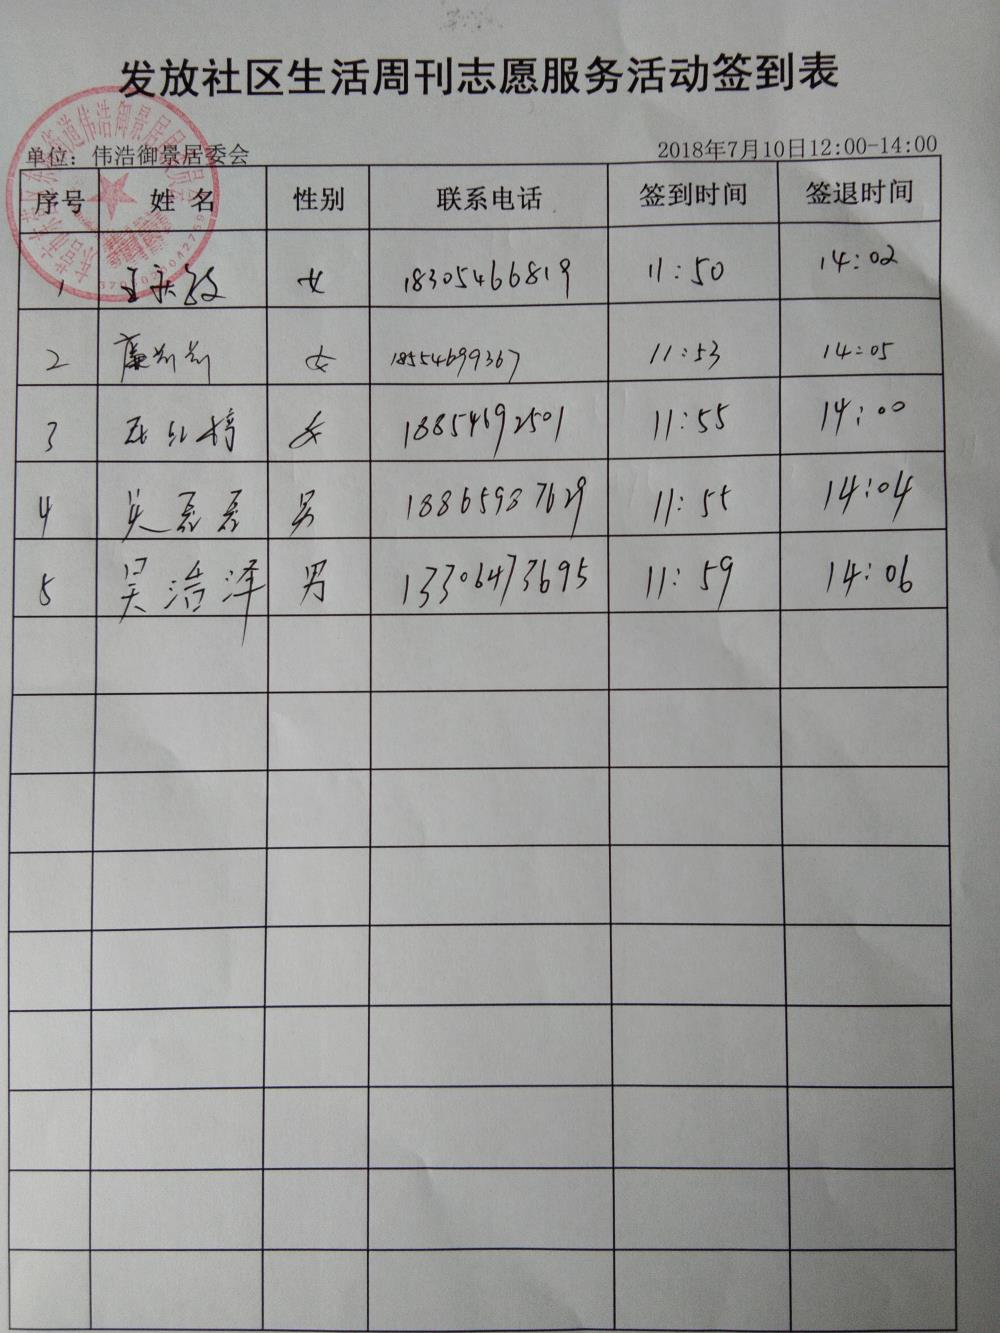 发放社区生活周刊志愿服务活动签到表
单位：伟浩御景居委会 2018年7月10日12:00-14:00
序号 姓名 性别 联系电话 签到时间 签退时间
1 女 18305466819 11:50 14:02
2 廉 女 18554699367 11:53 14:05
3 女 18854692501 11:55 14:00
4 吴磊磊 男 18865987629 11:55 14:04
5 吴浩泽 男 13306473695 11:59 14:06